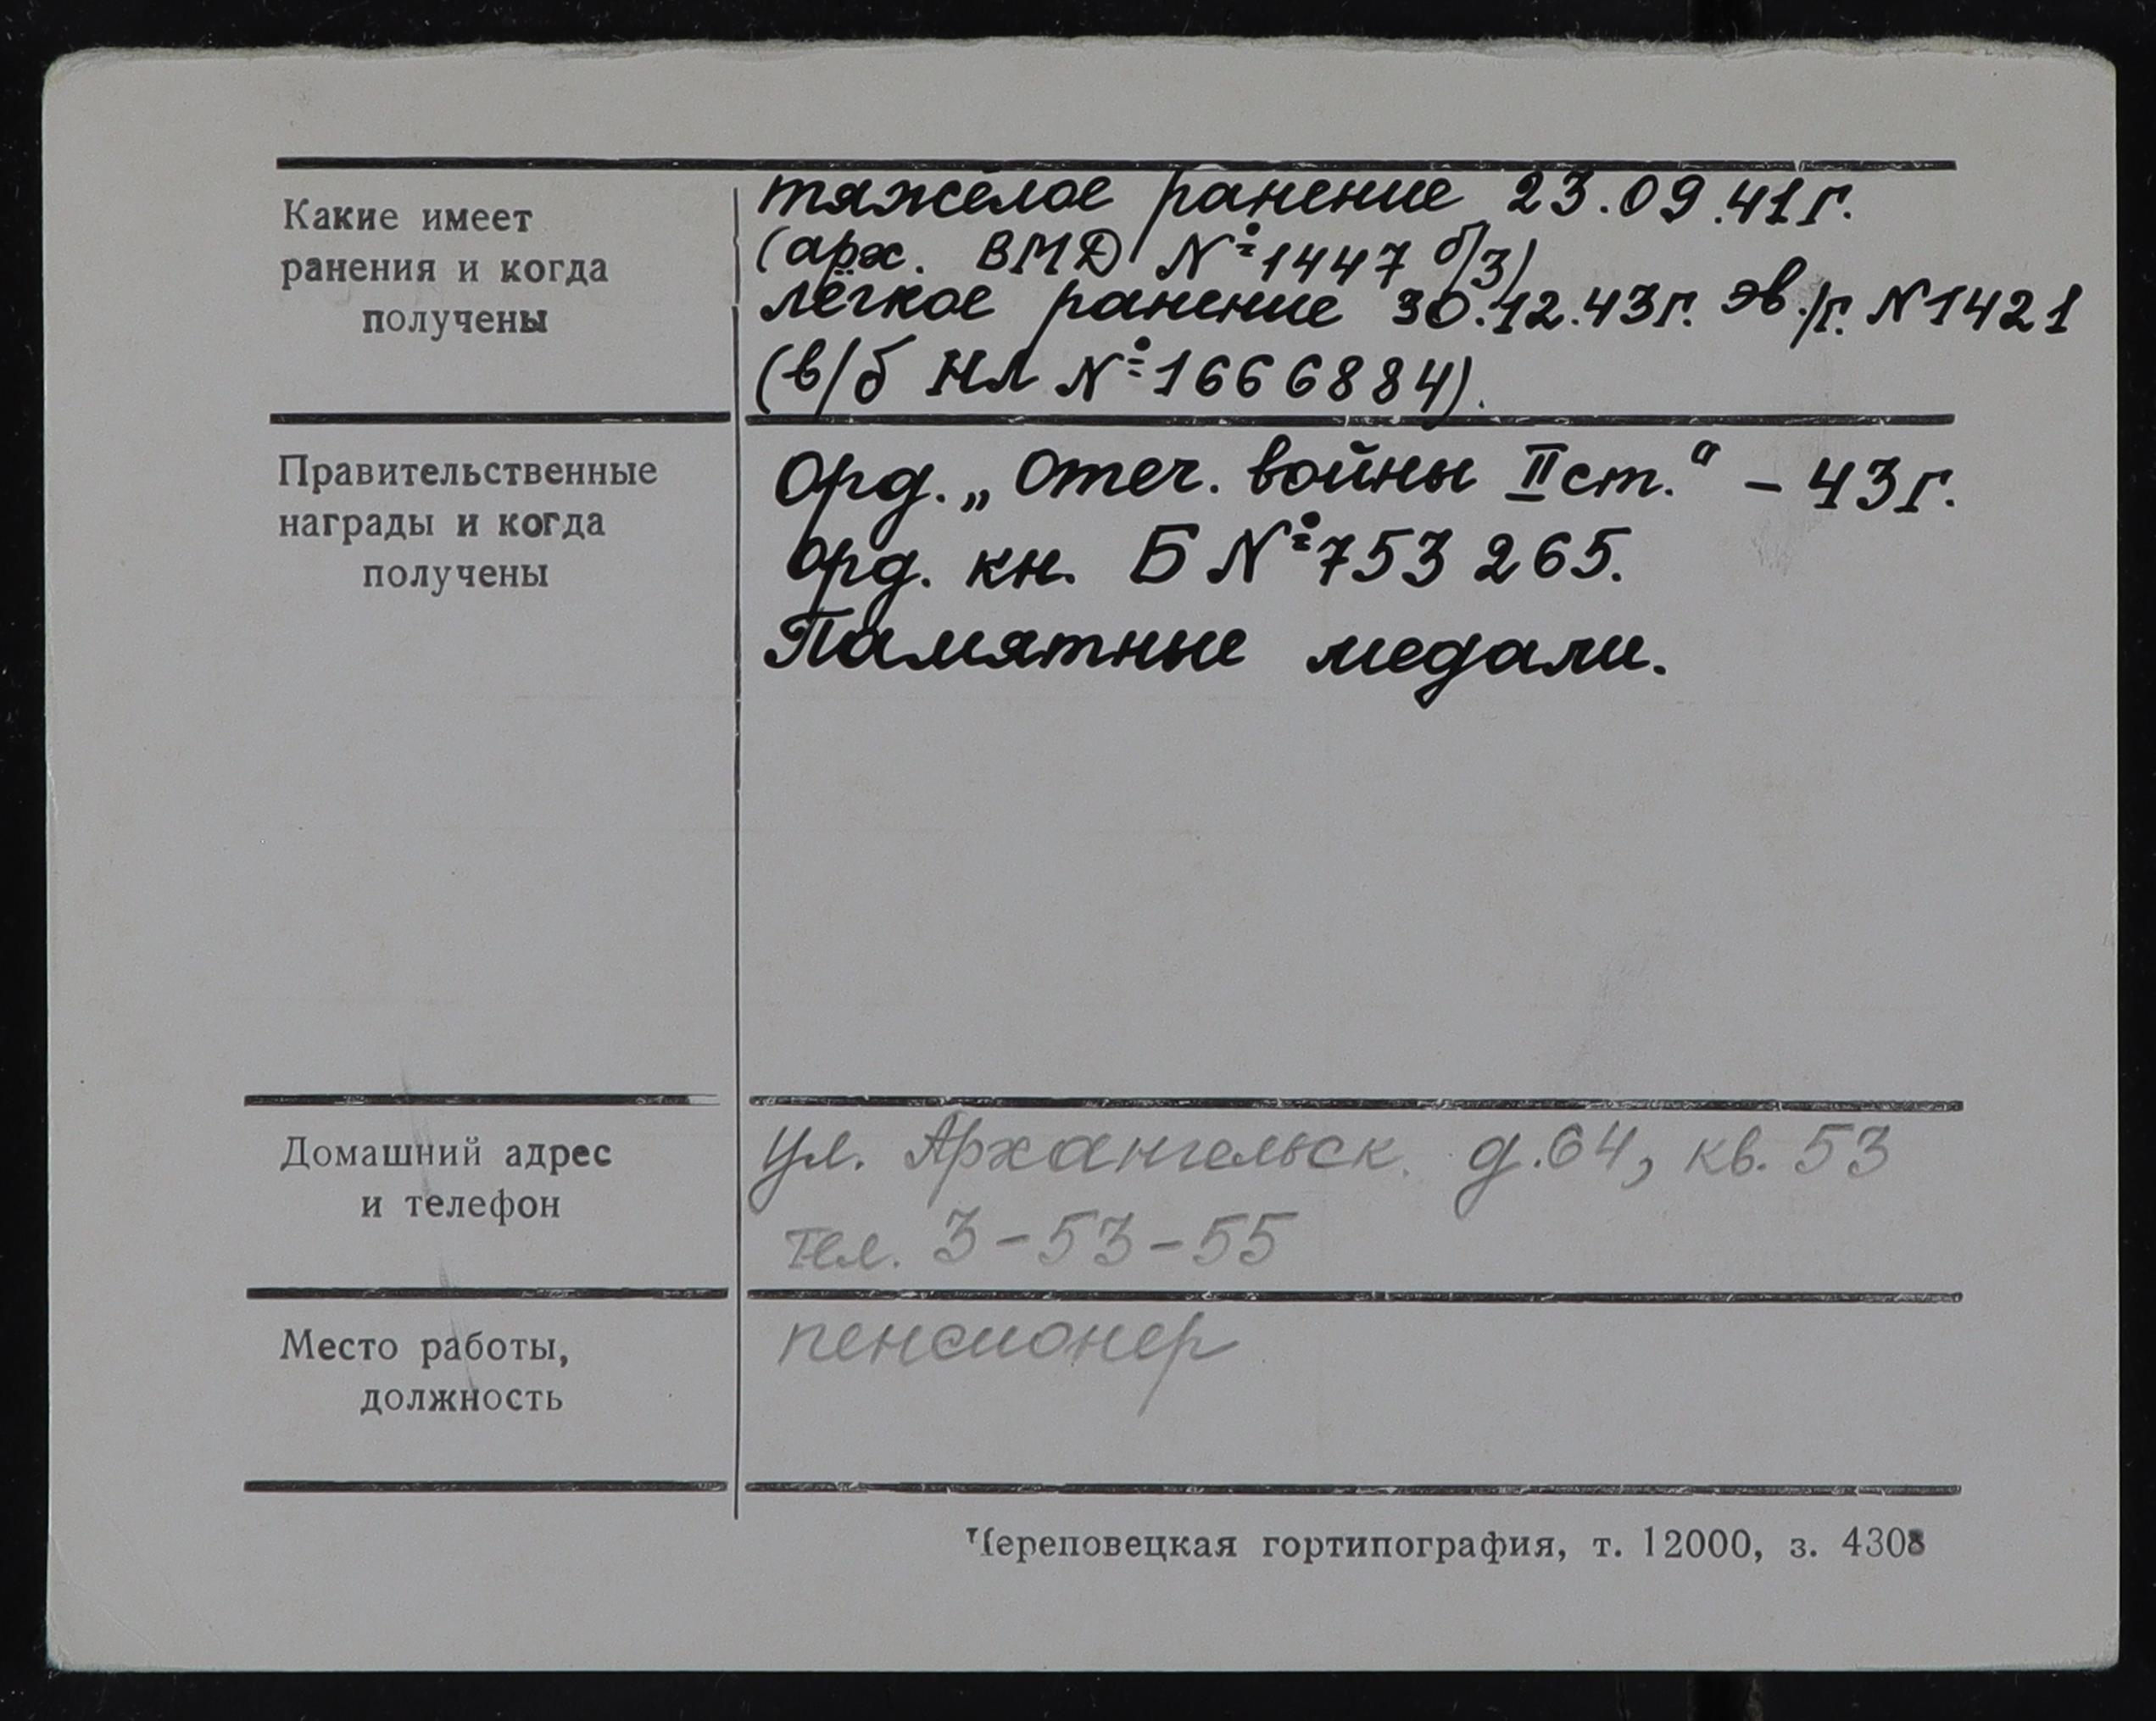 Какие имеет
ранения и когда
получены
тяжелое ранение 23.09.41г.
(арх. ВМД №1447 б/з)
лёгкое ранение 30.12.43г. эв./г. N1421
(в/б НЛ №1666884).
Правительственные
награды и когда
получены
Орд. „Отеч. войны II ст." – 43г.
орд. кн. Б №753265.
Памятные медали.
Домашний адрес
и телефон
ул. Архангельск. д.64, кв. 53
тел. 3-53-55
Место работы,
должность
пенсионер
Череповецкая гортипография, т. 12000, з. 4308